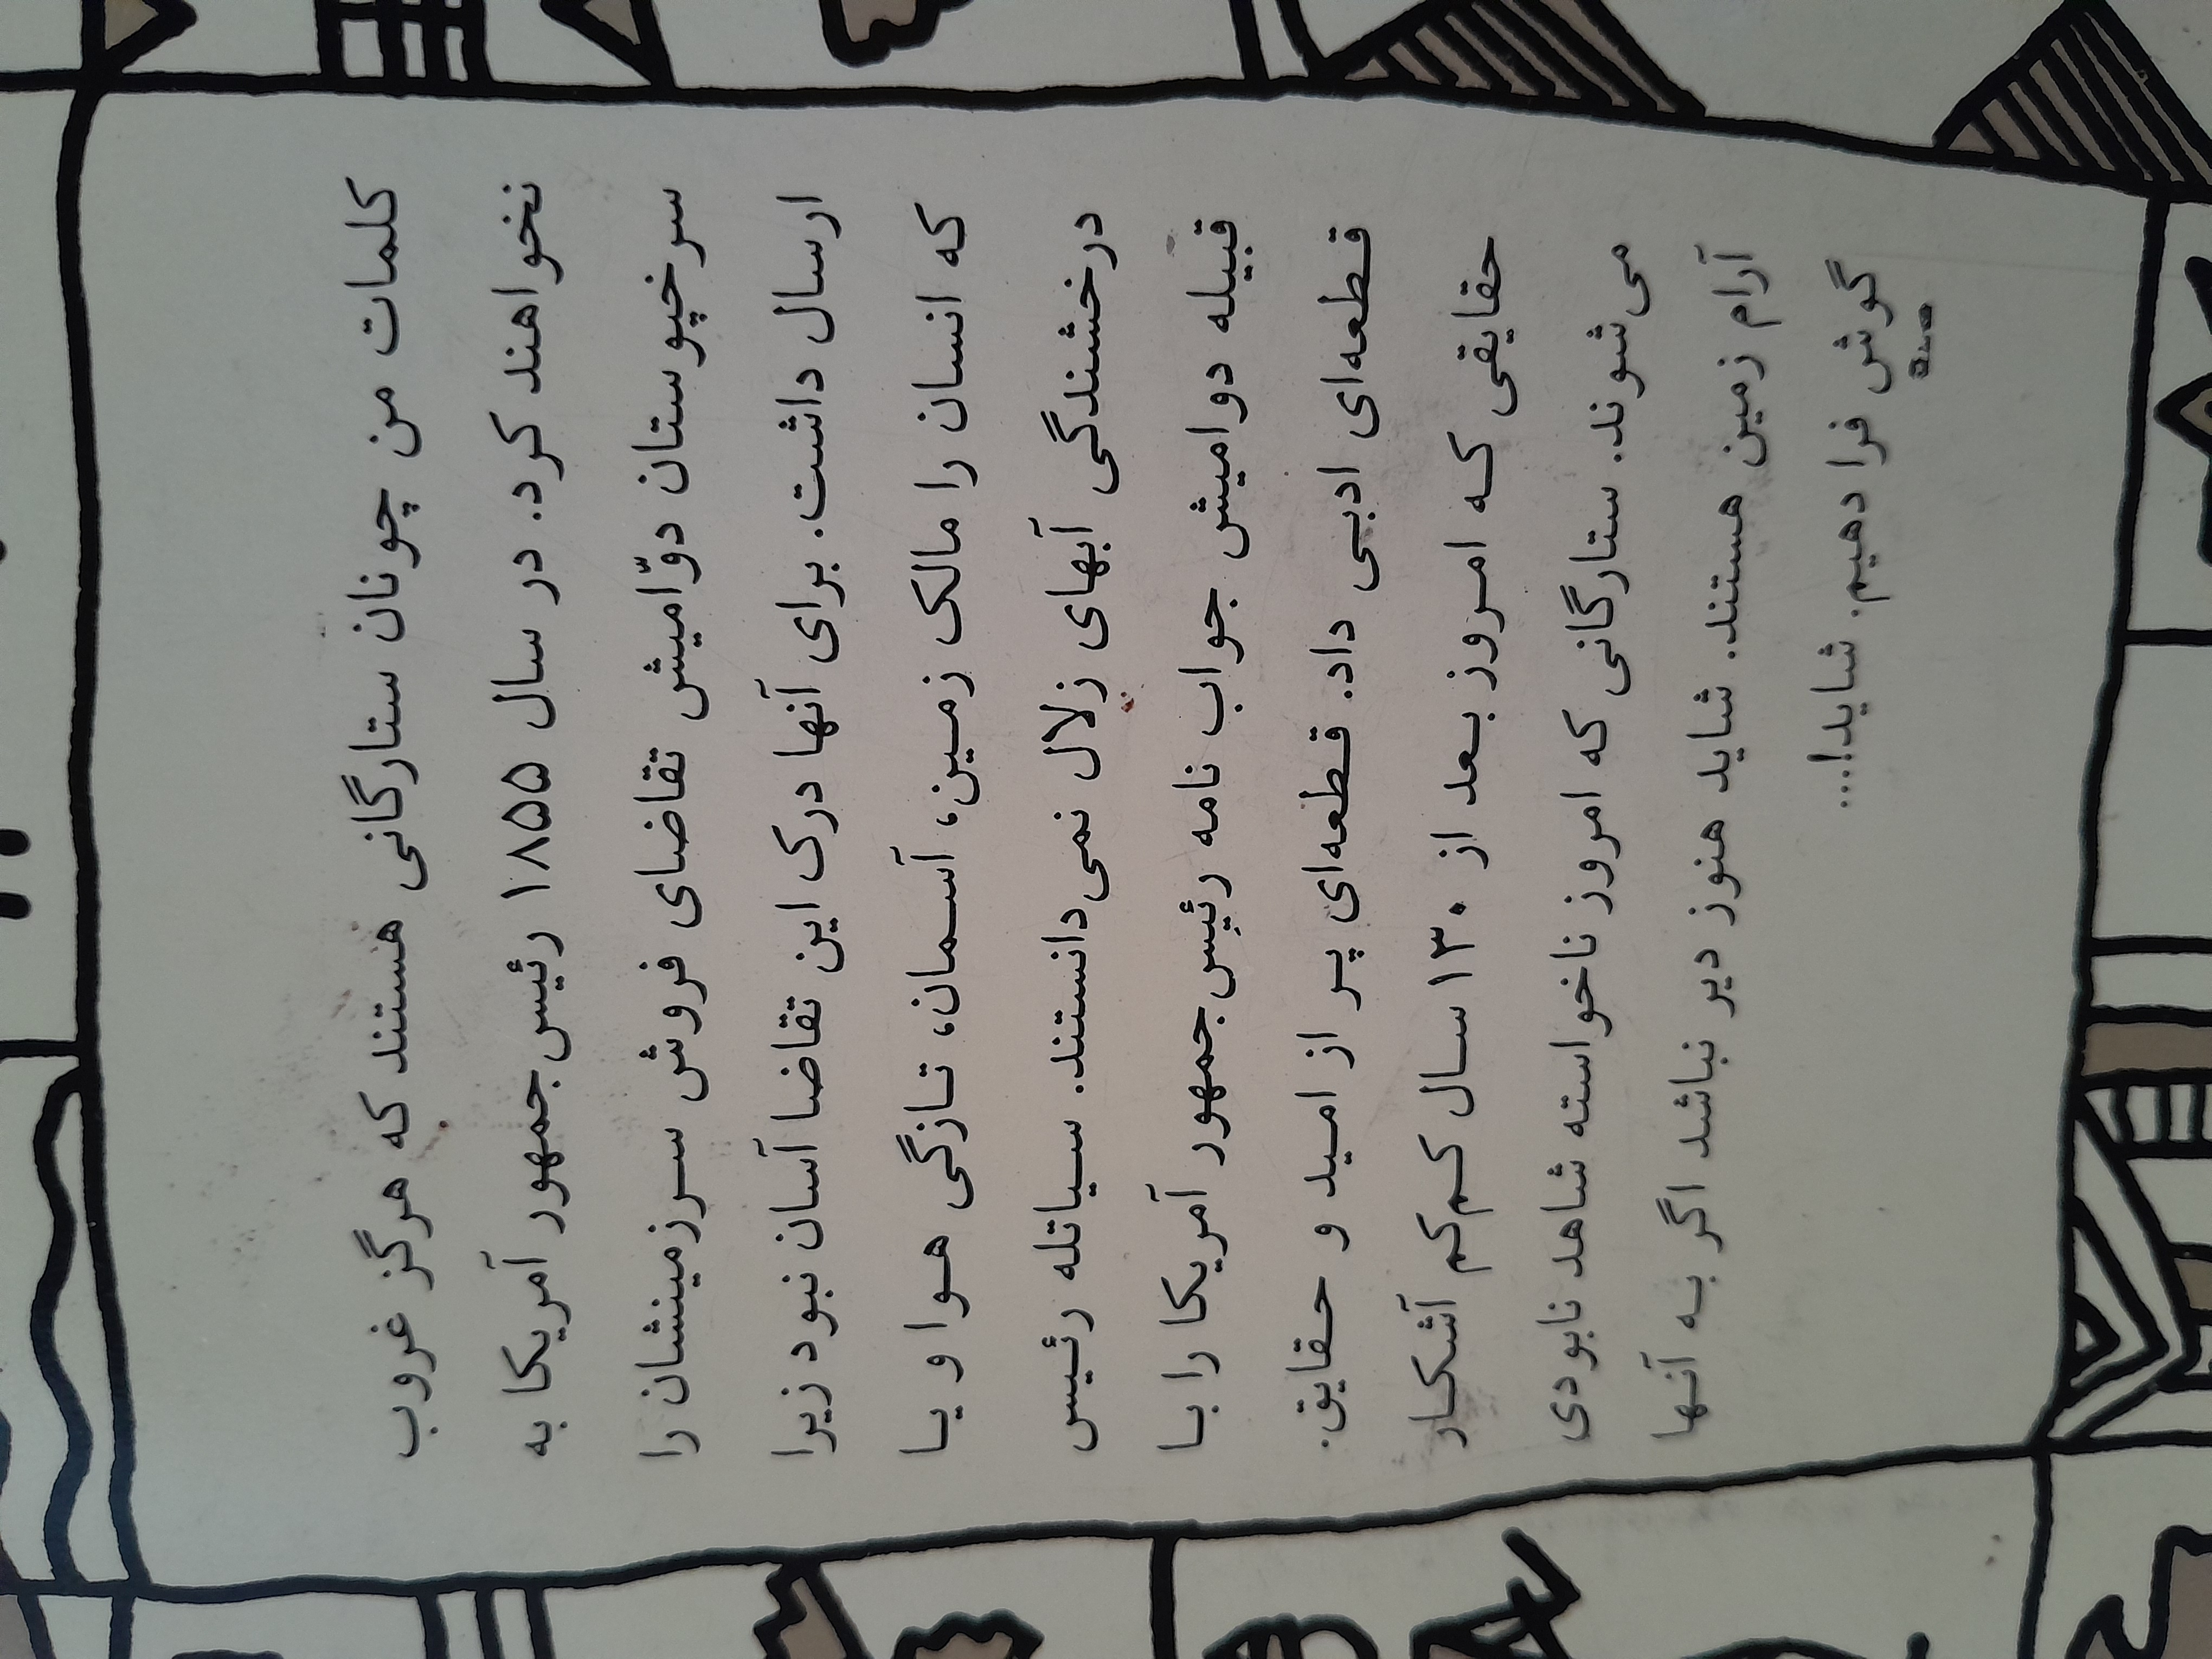 کلمات من چونان ستارگانی هستند که هرگز غروب
نخواهند کرد. در سال ۱۸۵۵ رئیس‌جمهور آمریکا به
سرخپوستان دوّامیش تقاضای فروش سرزمینشان را
ارسال داشت. برای آنها درک این تقاضا آسان نبود زیرا
که انسان را مالک زمین، آسمان، تازگی هوا و یا
درخشندگی آبهای زلال نمی‌دانستند. سیاتله رئیس
قبیله دوامیش جواب نامه رئیس‌جمهور آمریکا را با
قطعه‌ای ادبی داد. قطعه‌ای پر از امید و حقایق.
حقایقی که امروز بعد از ۱۳۰ سال کم‌کم آشکار
می‌شوند. ستارگانی که امروز ناخواسته شاهد نابودی
آرام زمین هستند. شاید هنوز دیر نباشد اگر به آنها
گوش فرا دهیم. شاید!...